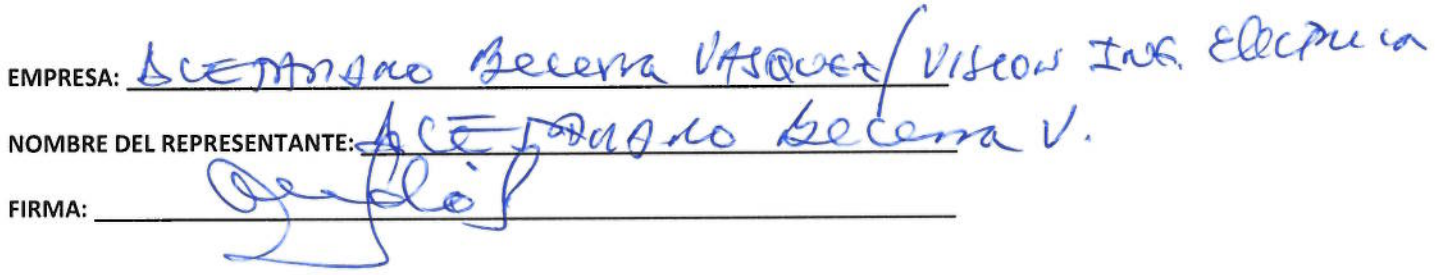 EMPRESA: Becerra VASQUEZ / VISION ING. Electrica
NOMBRE DEL REPRESENTANTE: Becerra V.
FIRMA: